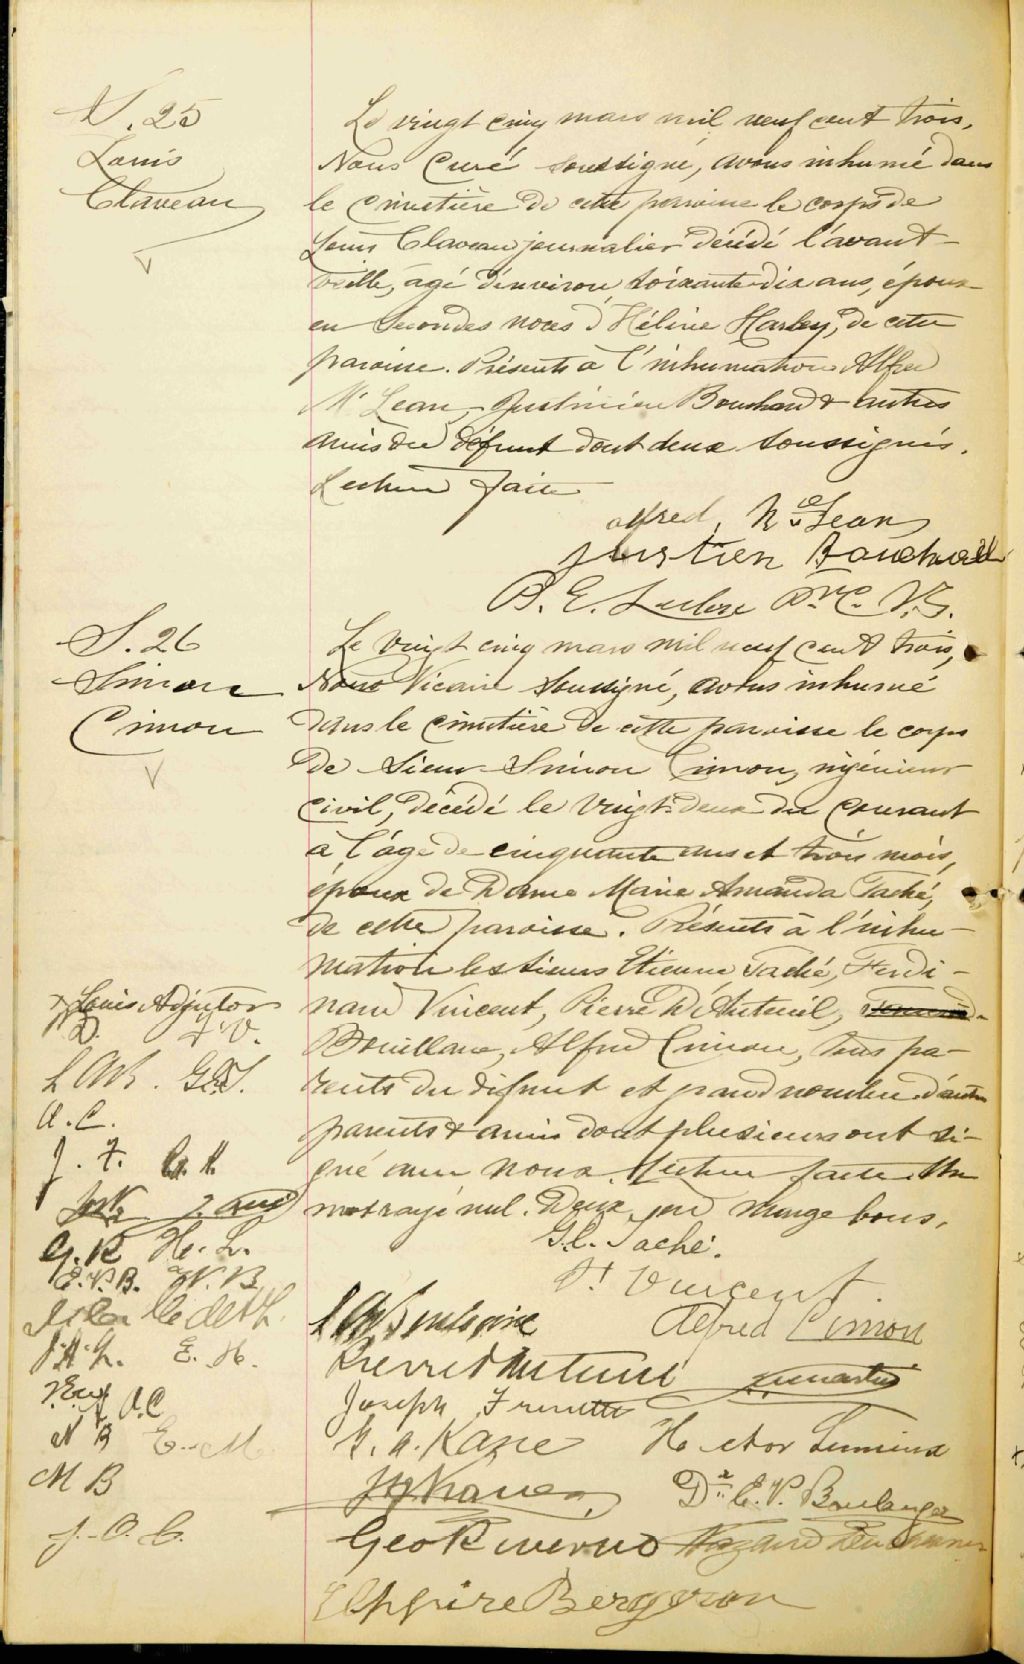 S. 25
Louis
Claveau
Le vingt cinq mars mil neuf cent trois,
Nous Curé soussigné, avons inhumé dans
le cimetière de cette paroisse le corps de
Louis Claveau journalier décédé l'avant-
veille, agé d'environ soixante-dix ans, époux
en secondes noces d'Héline Harley, de cette
paroisse. Présents à l'inhumation Alfred
McLean, Justinien Bouchard & autres
amis du défunt dont deux soussignés.
Lecture faite
alfred McLean
justien Bouchard
B. E. Leclerc Ptre C. V.F.
S. 26
Simon
Cimon
Le vingt cinq mars mil neuf cent trois,
Nous Vicaire soussigné, avons inhumé
dans le cimetière de cette paroisse le corps
de Sieur Simon Cimon, ingénieur
civil, décédé le vingt-deux du courant
à l'âge de cinquante ans et trois mois,
époux de Dame Marie Amanda Taché,
de cette paroisse. Présents à l'inhu-
mation les sieurs Etienne Taché, Ferdi-
nand Vincent, Pierre D'Auteuil,
Alfred Cimon, tous pa-
rents du défunt et grand nombre d'autres
parents & amis dont plusieurs ont si-
gné avec nous. Lecture faite. Un
mot rayé nul. Deux en marge bons.
x Louis Adjutor
D. F. V.
L A B. G.E.T.
A. C.
J. F. G. K.
G. R H. L.
E. V. B. N. B
J. A. L. E. H.
A. C
N B E. M
M B
J. O. C.
G.E. Taché.
Ft Vincent
Alfred Cimon
Pierre dAuteuil
Joseph Frenette
G. A. Kane Hector Lemieux
Dr E. V. Boulanger
Geo Riverin
Elphire Bergeron